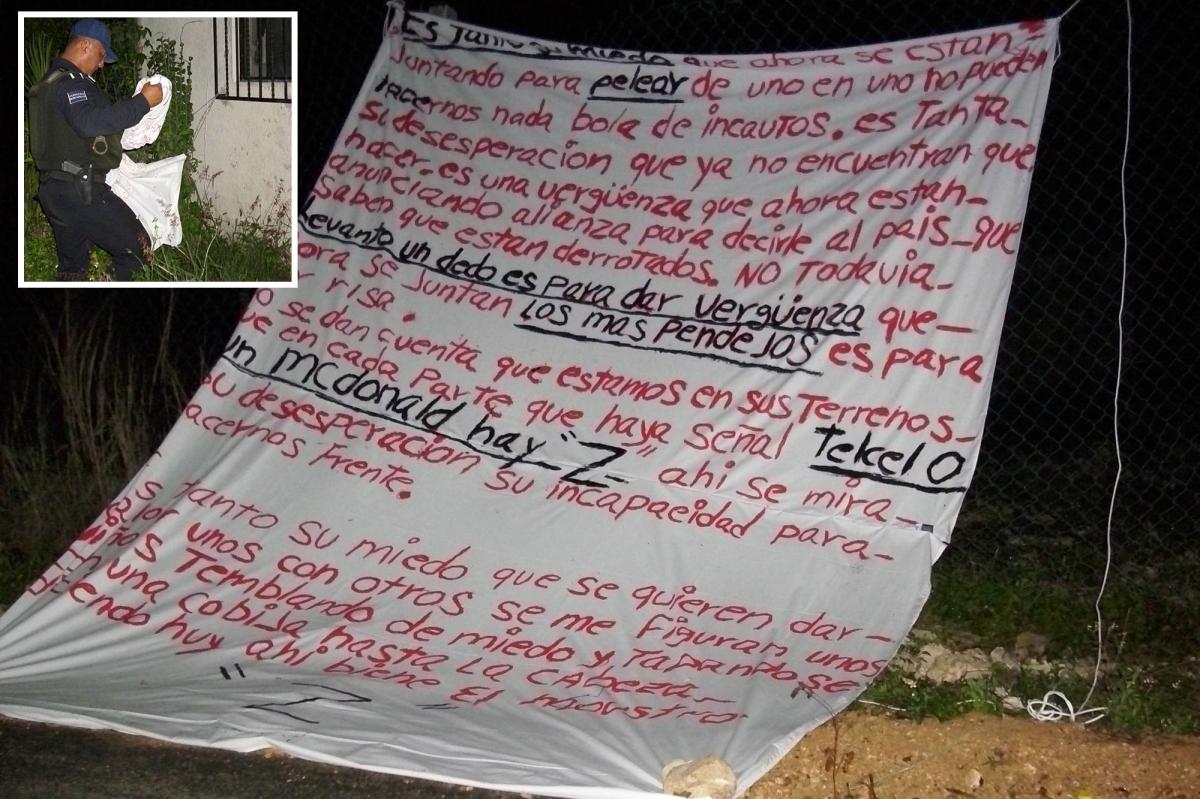 Es Tanto su miedo que ahora se estan
Juntando para pelear de uno en uno no pueden
hacernos nada bola de incautos. es Tanta_
su desesperacion que ya no encuentran que
hacer. es una vergüenza que ahora estan_
anunciando alianza para decirle al pais_que
saben que estan derrotados. NO Todavia_
Levanto un dedo es para dar vergüenza que_
ora se Juntan los mas pendejos es para
risa.
o se dan cuenta que estamos en sus Terrenos_
ue en cada parte que haya señal Telcel o
un mcdonald hay "Z" ahi se mira_
su desesperación su incapacidad para_
acernos Frente.
s tanto su miedo que se quieren dar_
unos con otros se me figuran unos
niños Temblando de miedo y Tapandose
en una cobija hasta La cabeza_
iciendo huy ahi biene El mounstro
"Z"